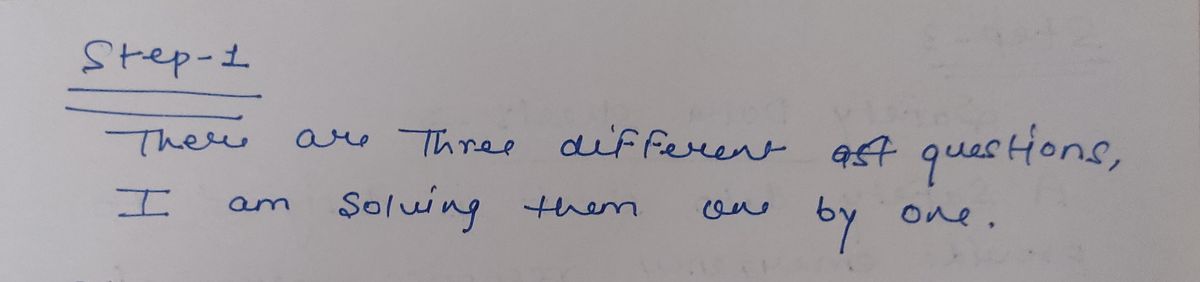 Step-1
There are Three different questions,
I am Solving them one by one.